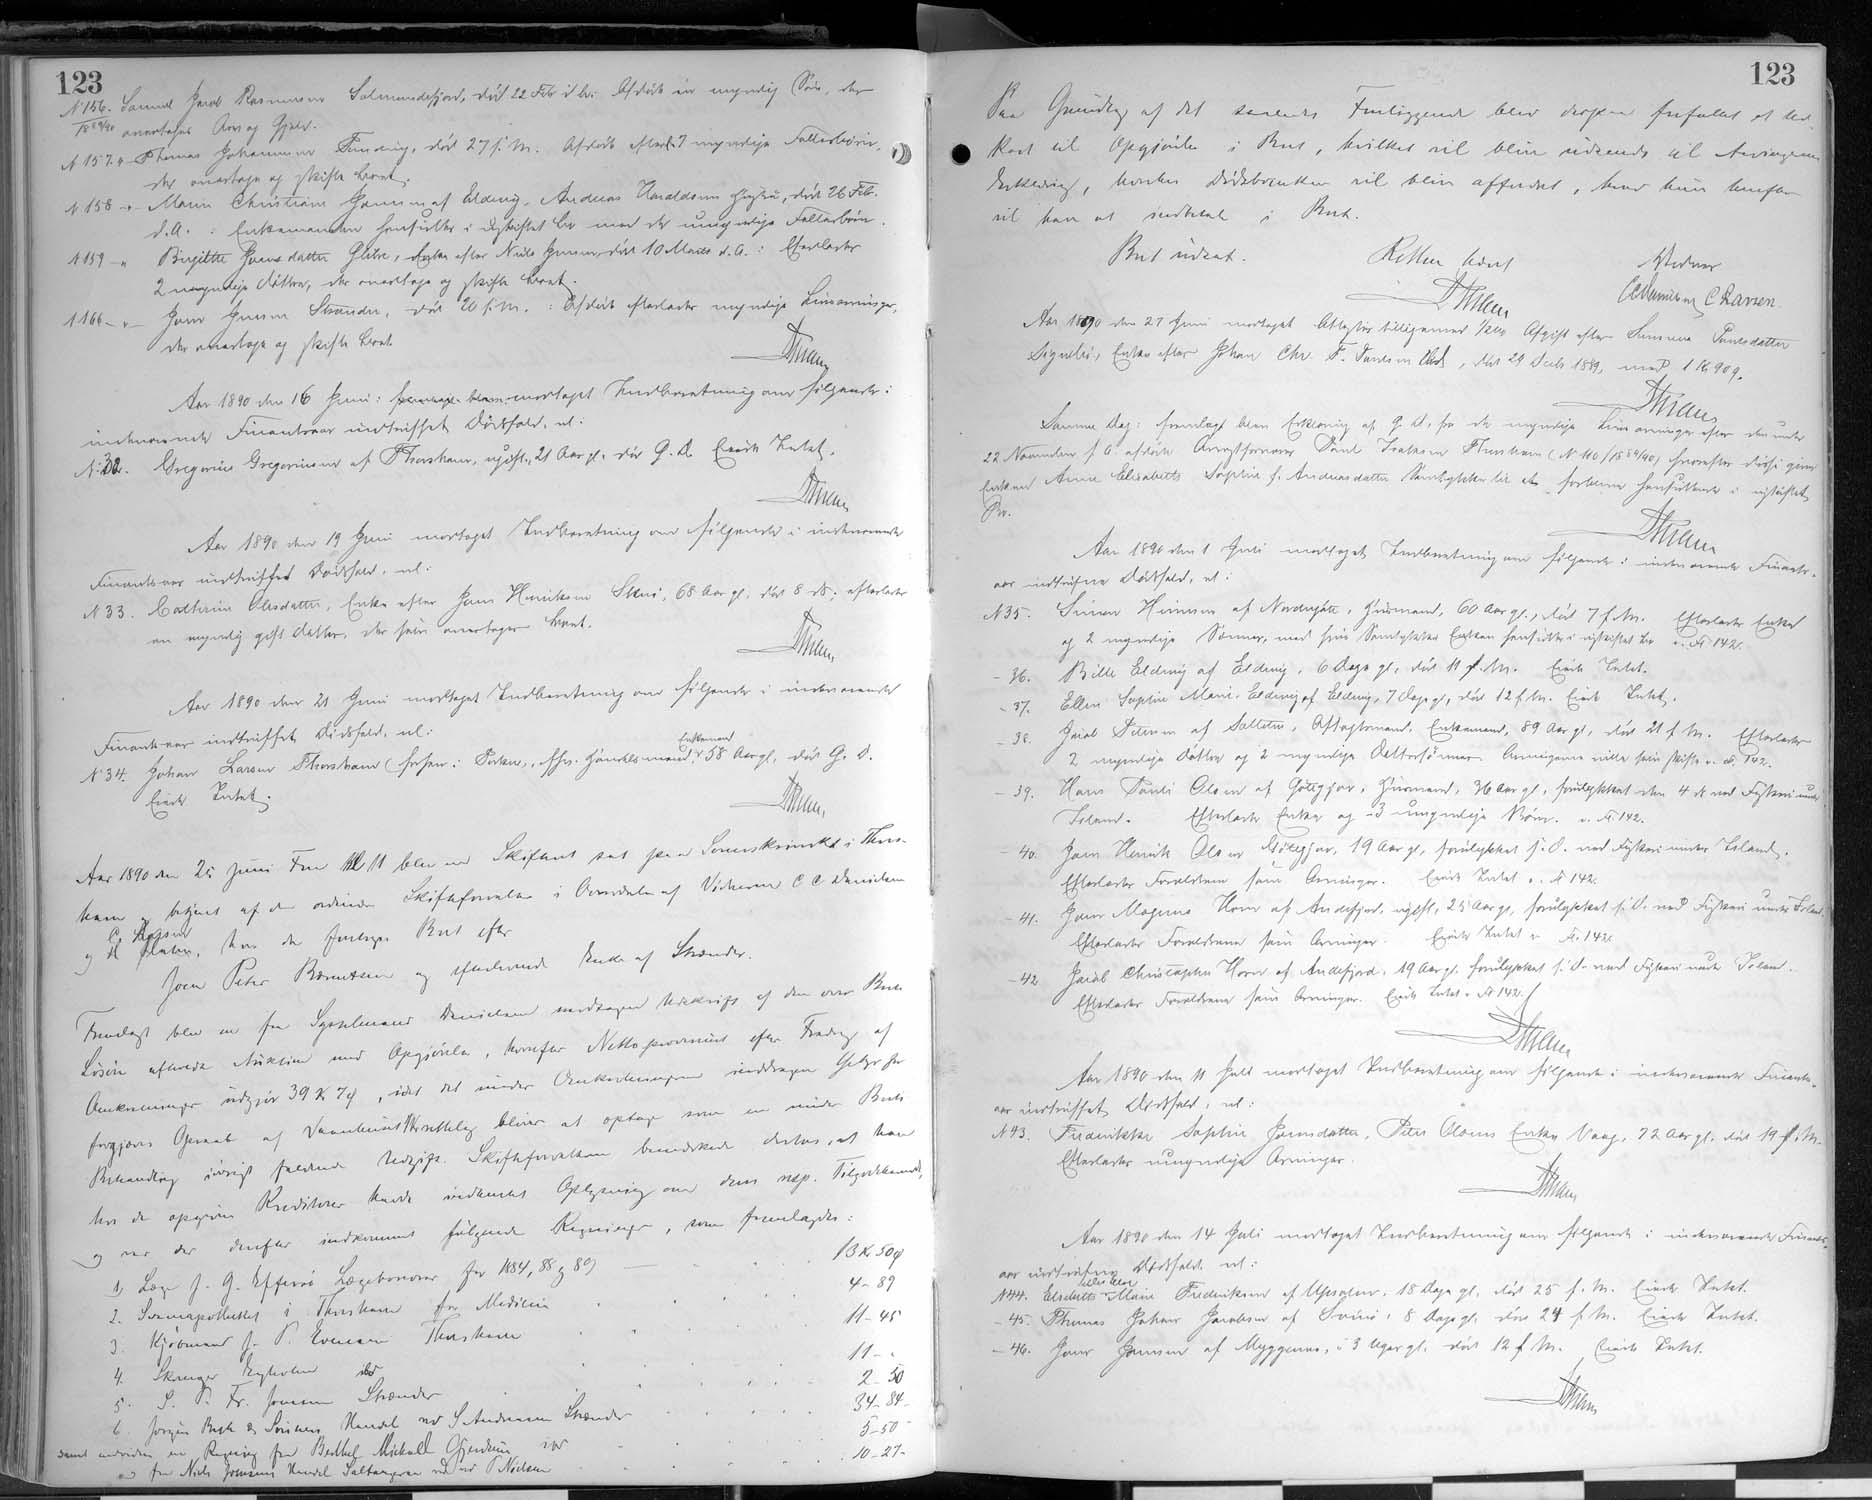 123
N 156. Samuel Jacob Rasmussen Salmundefjord, död 22 Feb d. A. Afdöde en myndig Sön, der
1889/90 overtager Arv og Gjæld.
N 157 " Thomas Johannesen Funding, död 27 s. M. Afdöde efterl. 7 myndige Fællesbörn,
der overtage og skifte Boet.
N 158 " Maren Christiane Joensen af Elduvig, Andreas Haraldsens Hustru, död 26 Feb.
d. A. : Enkemanden hensidder i uskiftet Bo med de umyndige Fællesbörn.
N 159 " Birgithe Joensdatter Glibre, Enke efter Niels Joensen, död 10 Marts d. A. : Efterlader
2 myndige Döttre, der overtage og skifte Boet.
N 166 " Joen Joensen Strænder, död 20 s. M. : Afdöde efterlader myndige Livsarvinger,
der overtage og skifte Boet.
Aar 1890 den 16 Juni: modtoges Indberetning om fölgende i
indeværende Finantsaar indtruffet Dödsfald, nl:
N 32. Gregorius Gregoriussen af Thorshavn, ugift, 21 Aar gl. död G. D. Eiede Intet.
Aar 1890 den 19 Juni modtoges Indberetning om fölgende i indeværende
Finantsaar indtruffet Dödsfald, nl:
N 33. Cathrine Olesdatter, Enke efter Joen Henriksen Skuö, 68 Aar gl. död 8 ds; efterlader
en myndig gift Datter, der selv overtager Boet.
Aar 1890 den 21 Juni modtoges Indberetning om fölgende i indeværende
Finantsaar indtruffet Dödsfald, nl:
Enkemand
N 34. Johan Larsen Thorshavn, Handelsmand, 58 Aar gl, död G. D.
Eiede Intet.
Aar 1890 den 25 Juni Fm Kl 11 blev en Skifteret sat paa Sorenskriverkt. i Thors-
havn og betjent af den ordinære Skifteforvalter i Overværelse af Vidnerne C C Danielsen
C. Larsen
og, hvor da foretoges Boet efter
Joen Peter Berentsen og efterlevende Enke af Strænder.
Fremlagt blev en fra Sysselmand Danielsen modtagen Udskrift af den over Boets
Lösöre afholdte Auktion med Opgjörelse, hvorefter Nettoprovenuet efter Fradrag af
Omkostninger udgjör 39 Kr 7 ø, idet det under Omkostningerne inddragne Gebyr for
forgjæves Opraab af bliver at optage som en under Boets
Behandling iövrigt faldende Udgift. Skifteforvalteren bemærkede derhos, at han
hos de opgivne Kreditorer havde indhentet Oplysning om deres resp. Tilgodehavende,
og var der derefter indkommet fölgende Regninger, som fremlagdes:
1, Læge J. G. Effersö Lægehonorar for 1884, 88 og 89 13 Kr 50 ø
2. Svaneapotheket i Thorshavn for Medicin 4 - 89
3. Kjöbmand J. P. Evensen Thorshavn 11 - 45
4. Skrænger ibd 11 - "
5. S. P. Fr. Joensen Strænder 2 - 50
6. Jörgen Bech & Sönners Handel ved S Andreasen Strænder 34 - 84
samt endvidere en Regning fra Berthel Michael Gjerding ibd 5 - 50
og fra Niels Joensens Handel Saltangeren ved P Nielsen 10 - 27
123
Paa Grundlag af det saaledes Foreliggende blev derpaa forfattet et Ud-
kast til Opgjörelse i Boet, hvilket vil blive udsendt til Arvingernes
Erklæring, hvorhos Dödsboenken vil blive affordret, hvad hun herefter
vil have at indbetale i Boet.
Boet udsat. Retten hævet
Vidner
C C Danielsen C Larsen
Aar 1890 den 27 Juni modtoges Attester tilligemed Afgift efter Sunneva Poulsdatter
Signebö, Enke efter Johan Chr. F. Poulsen ibd, död 29 Decb 1889, med 1 Kr 90 ø.
Samme Dag: fremlagt blev Erklæring af G. D. fra de myndige Livsarvinger efter den under
22 November f. A. afdöde Arrestforvarer Poul Isaksen Thorshavn (N 110/1889/90) hvorefter disse give
Enken Anna Elisabeth Sophie f. Andreasdatter Samtykke til at forblive hensiddende i uskiftet
Bo.
Aar 1890 den 1 Juli modtoges Indberetning om fölgende i indeværende Finants-
aar indtrufne Dödsfald, nl:
N 35. Simon Hansen af Nordregöte, Husmand, 60 Aar gl, död 7 f. M. Efterlader Enke
og 2 myndige Sönner, med hvis Samtykke Enken hensidder i uskiftet Bo v. N 142.
- 36. Bille Elduvig af Elduvig, 6 Dage gl. död 11 f. M. Eiede Intet.
- 37. Ellen Sophie Marie Elduvig af Elduvig, 7 Dage gl, död 12 f. M. Eiede Intet.
- 38. Jacob Petersen af Selletræ, Aftægtsmand, Enkemand, 89 Aar gl, död 21 f. M. Efterlader
2 myndige Döttre og 2 myndige Dattersönner. Arvingerne ville selv skifte v. N. 142.
- 39. Hans Pauli Olsen af Götegjov, Husmand, 36 Aar gl, forulykket den 4 ds ved Fiskeri under
Island. Efterlader Enke og 3 umyndige Börn. v. N. 142.
- 40. Joen Henrik Olsen Götegjov, 19 Aar gl, forulykket s. D. ved Fiskeri under Island.
Efterlader Forældrene som Arvinger. Eiede Intet v. N 142.
- 41. Joen Magnus Horn af Andefjord, ugift, 25 Aar gl, forulykket s. D. ved Fiskeri under Island.
Efterlader Forældrene som Arvinger. Eiede Intet v N. 142.
- 42. Jacob Christopher Horn af Andefjord, 19 Aar gl. forulykket s. D. ved Fiskeri under Island.
Efterlader Forældrene som Arvinger. Eiede Intet v N 142.
Aar 1890 den 11 Juli modtoges Indberetning om fölgende i indeværende Finants-
aar indtruffet Dödsfald, nl:
N 43. Frederikke Sophie Joensdatter, Peter Olsens Enke Vaag, 72 Aar gl. död 19 f. M.
Efterlader umyndige Arvinger.
Aar 1890 den 14 Juli modtoges Indberetning om fölgende i indeværende Finants-
aar indtrufne Dödsfald, nl:
N 44. Elsebeth Marie Frederiksen af, 18 Dage gl, död 25 f. M. Eiede Intet.
- 45. Thomas Johan Jacobsen af Svinö, 8 Dage gl, död 24 f. M. Eiede Intet.
- 46. Joen Joensen af Myggenæs, 3 Uger gl. död 12 f. M. Eiede Intet.